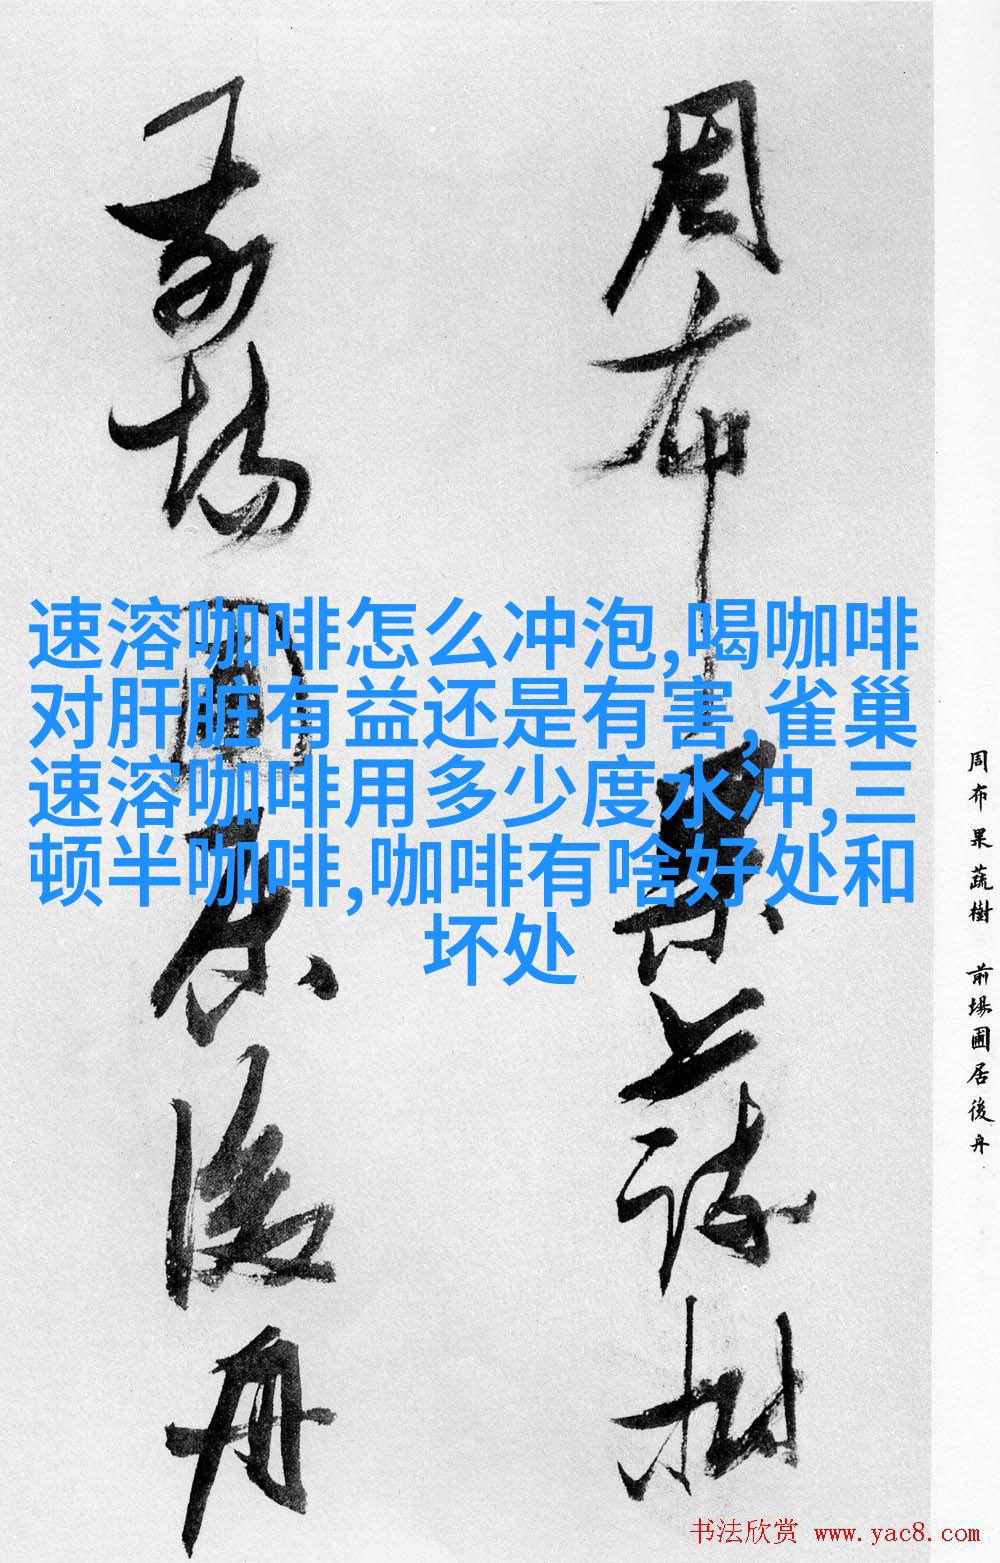 周布果蔬樹
前場圃居後舟
速溶咖啡怎么冲泡,喝咖啡
对肝脏有益还是有害,雀巢
速溶咖啡用多少度水冲,三
顿半咖啡,咖啡有啥好处和
坏处
周布果蔬樹 前場圃居後舟
书法欣赏 www.yac8.com